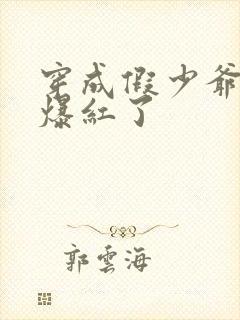 穿成假少爺
爆紅了
郭雲海